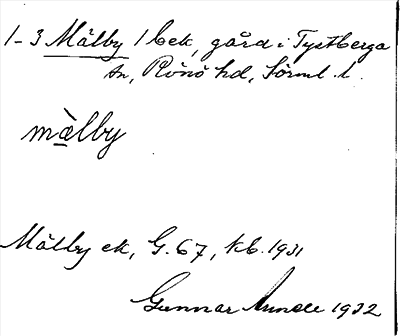 1-3 Mälby 1 bek, gård i Tystberga
sn, Rönö hd, Sörml. l.
mä̀lby
Mälby ek, G. 67, kb. 1931
Gunnar 1932